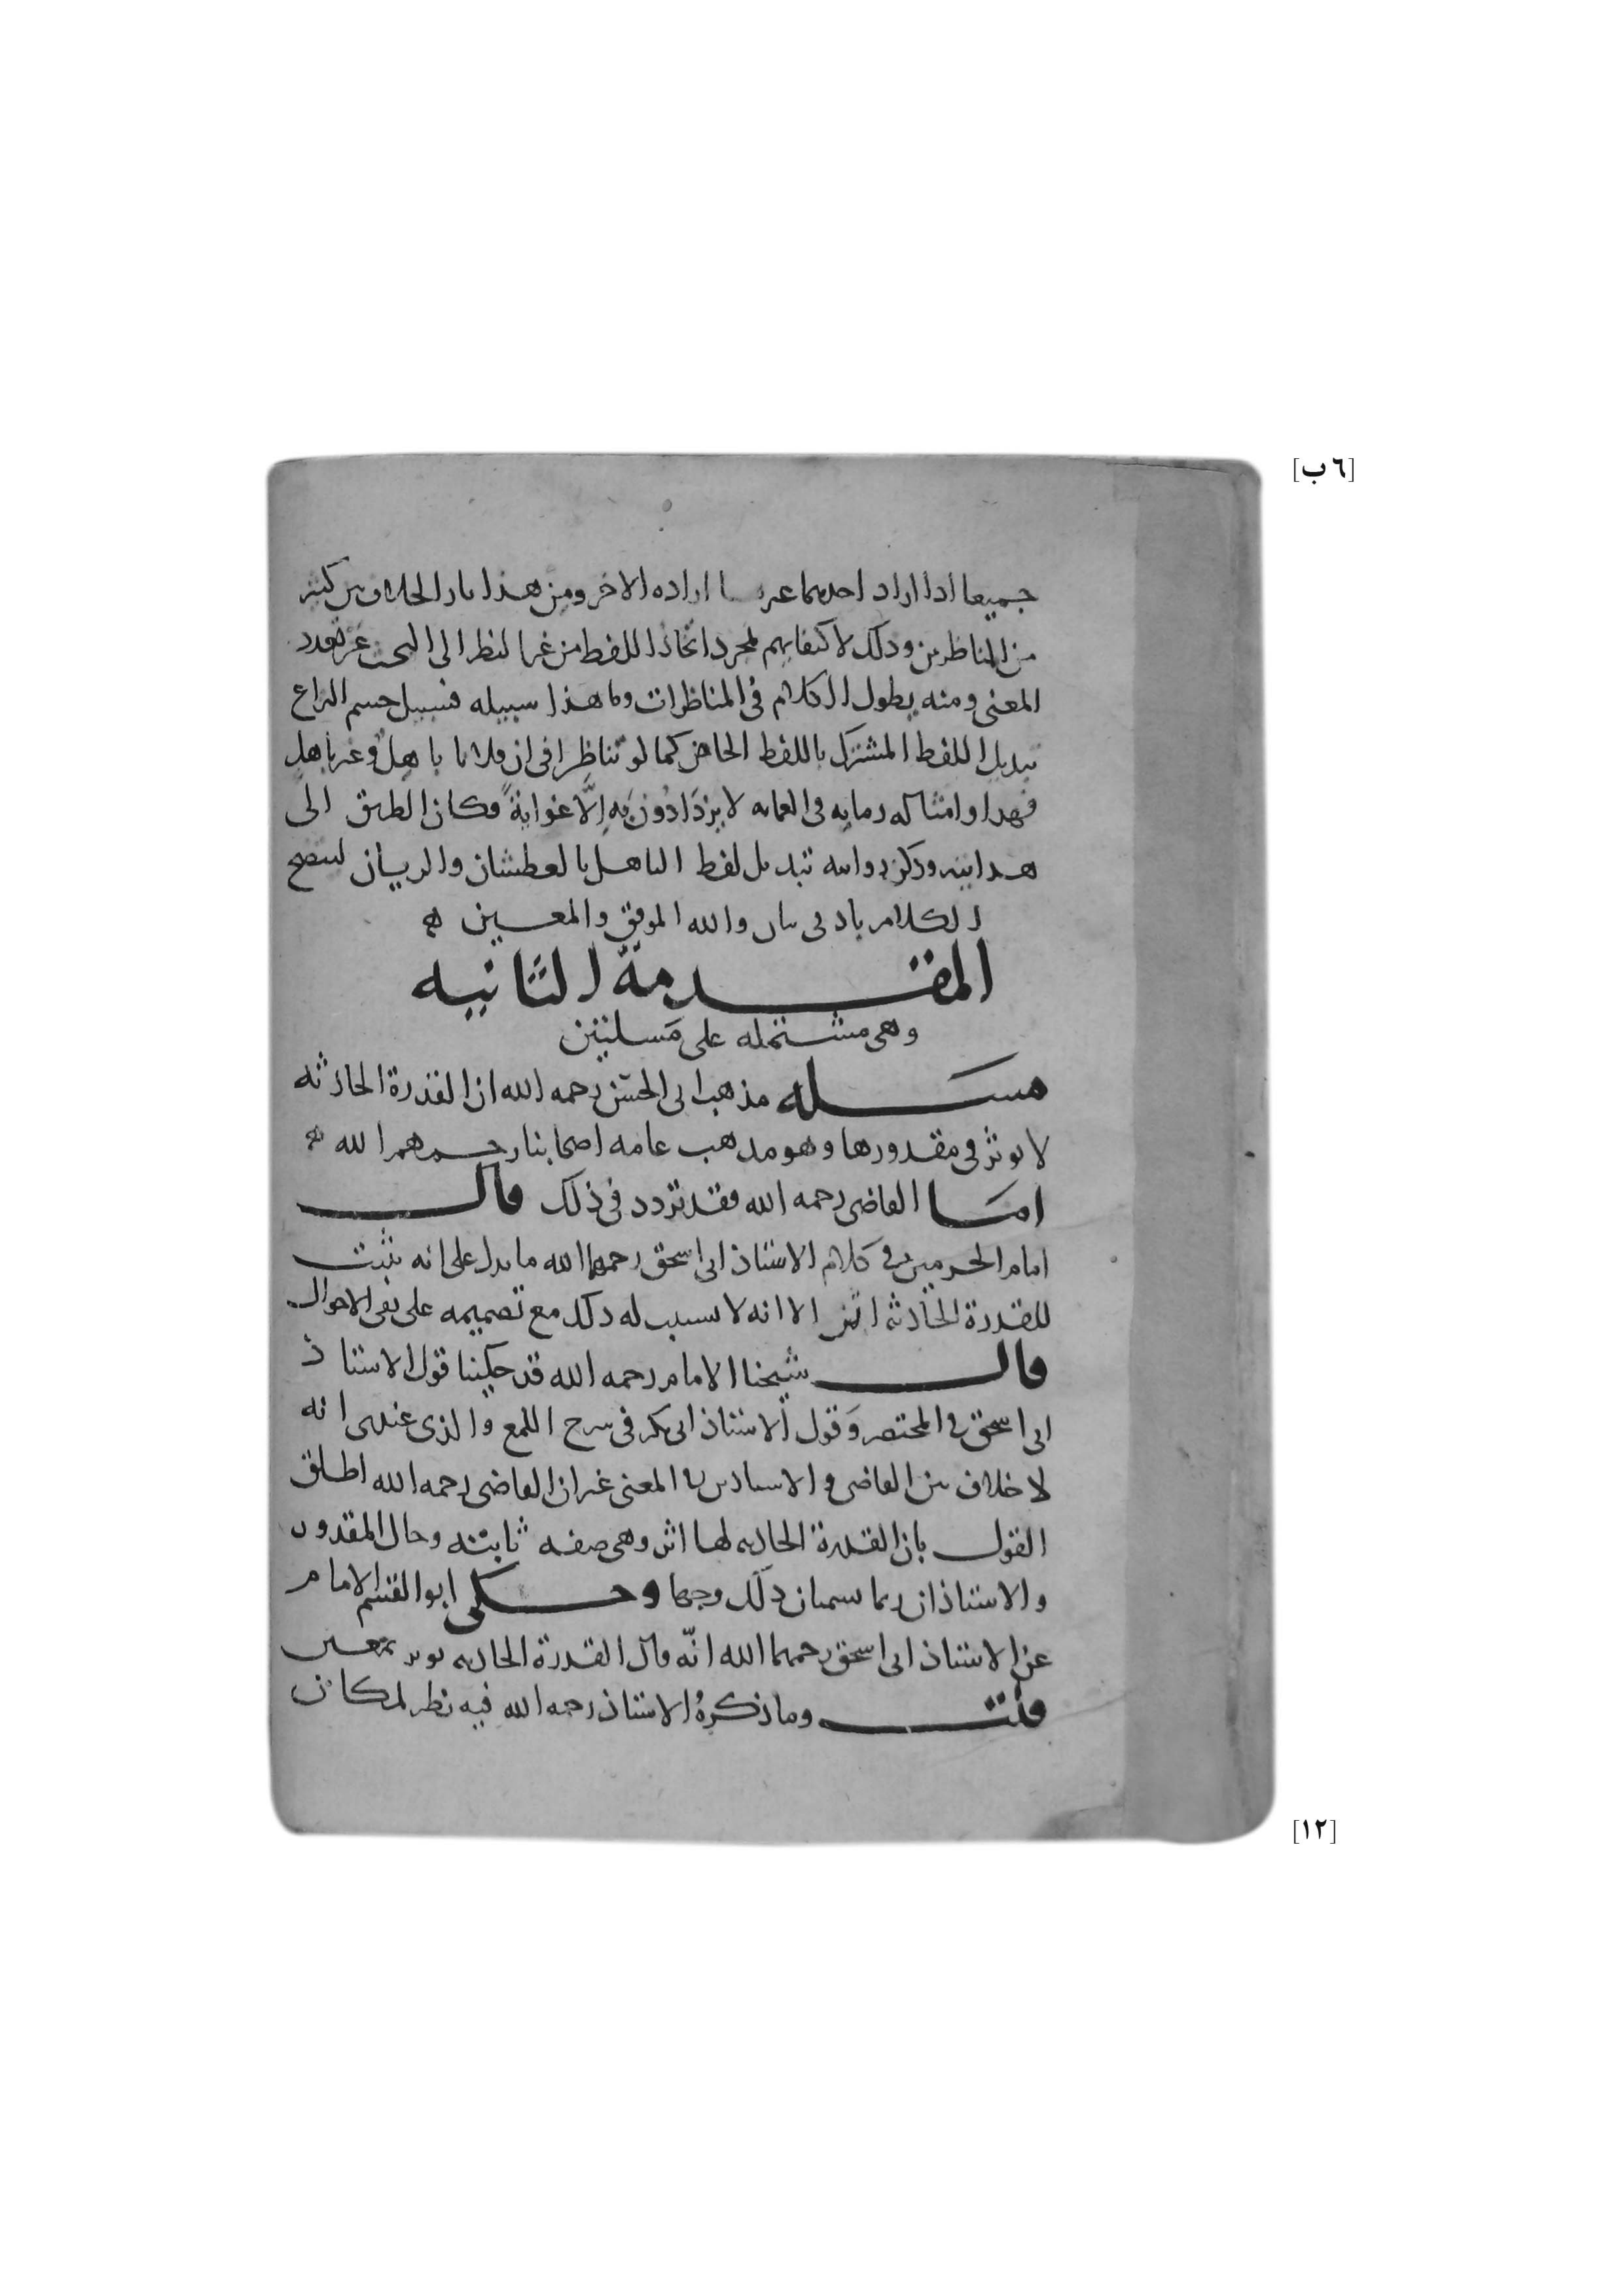 [٦ ب]
جميعا اذا اراد احدهما غير ما اراده الاخر ومن هذا ثار الخلاف بين كثير
من المناظرين وذلك لاكتفايهم بمجرد اتحاد اللفظ من غير النظر الى البحث عن تعدد
المعنى ومنه يطول الكلام في المناظرات وما هذا سبيله فسبيل حسم النزاع
تبديل اللفظ المشترك باللفظ الخاص كما لو تناظرا في ان فلانا ناهل وغير ناهل
فهذا وامثاله رمايه في العمايه لا يزدادون به الا غوايةً وكان الطريق الى
هدايته وذكر دوايه تبديل لفظ الناهل بالعطشان والريان ليتضح
الكلام بادنى بيان والله الموفق والمعين ه
المقدمة الثانيه
وهي مشتمله على مسلتين
مسله مذهب ابي الحسن رحمه الله ان القدرة الحادثه
لا توثر في مقدورها وهو مذهب عامه اصحابنا رحمهم الله ه
امّا القاضي رحمه الله فقد تردد في ذلك قال
امام الحرمين وفي كلام الاستاذ ابي اسحق رحمهما الله ما يدل على انه يثبت
للقدرة الحادثه اثرا الا انه لا سبيل له ذلك مع تصميمه على نفي الاحوال
قال شيخنا الامام رحمه الله قد حكينا قول الاستاذ
ابي اسحق في المختصر وقول الاستاذ ابي بكر في شرح اللمع والذي عندي انه
لا خلاف بين القاضي والاستاذين في المعنى غير ان القاضي رحمه الله اطلق
القول بان القدرة الحادثه لها اثر وهي صفه ثابته وحال المقدور
والاستاذان ربما يسميان ذلك وجها وحكى ابو القسم الامام
عن الاستاذ ابي اسحق رحمهما الله انّه قال القدرة الحادثه توثر بمعين
قلت وما ذكرهُ الاستاذ رحمه الله فيه نظر لمكان
[١٢]